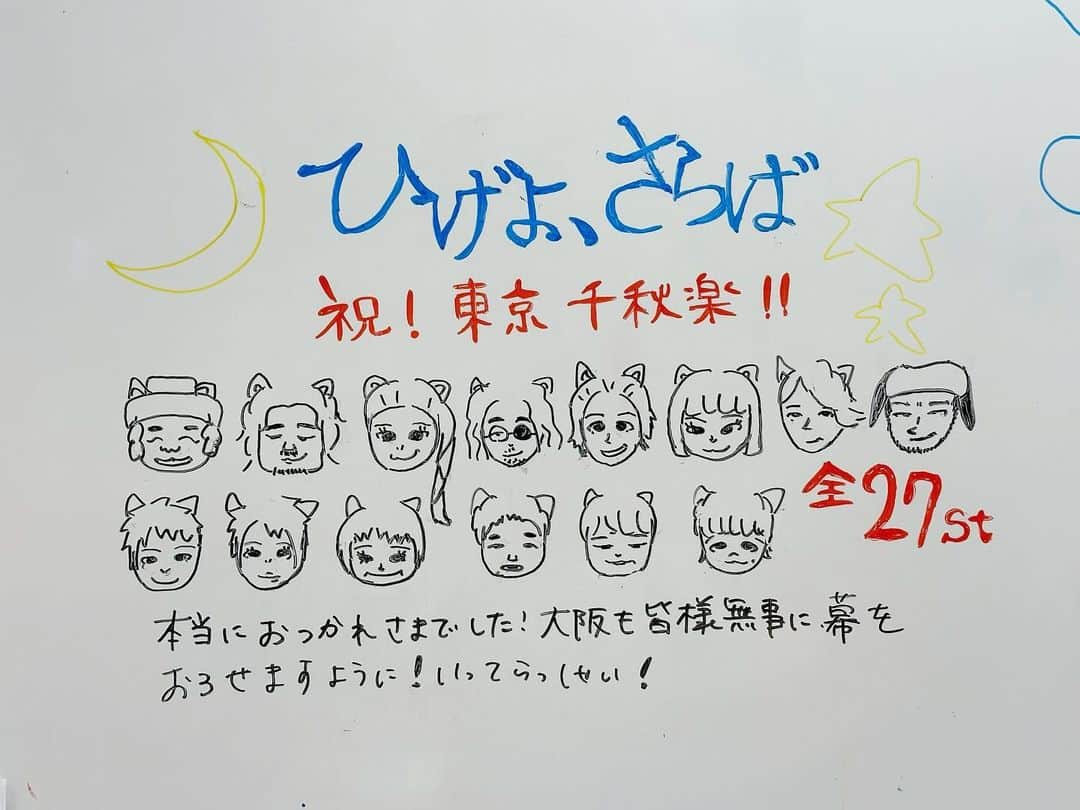 ひげよ、さらば
祝！東京 千秋楽!!
全27st
本当におつかれさまでした！大阪も皆様無事に幕を
おろせますように！いってらっしゃい！